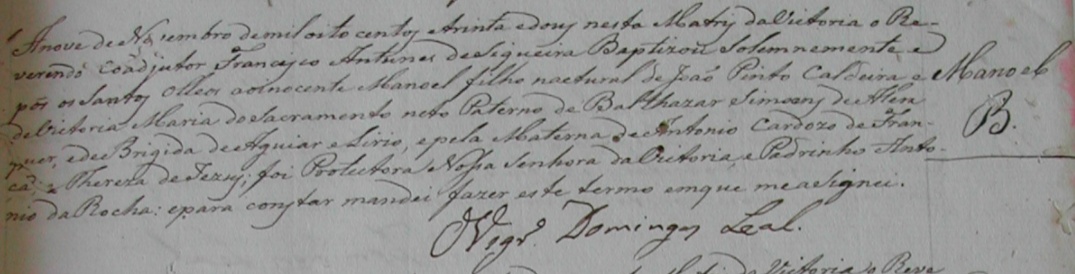 Anove de Novembro demil oito centos e trinta e dous nesta Matriz da Victoria o Re-
verendo Coadjutor Francisco Antunes de Siqueira Baptizou Solemnemente, e
pôs os Santos Olleos ao innocente Manoel filho nactural de João Pinto Caldeira e
de Victoria Maria do Sacramento neto Paterno de Balthazar Simoens de Alen
quer, e de Brigida de Aguiar e Lirio, e pela Materna de Antonio Cardozo de Fran-
ca, e Thereza de Jezus; foi Protectora Nossa Senhora da Victoria, e Padrinho Anto-
nio da Rocha: e para constar mandei fazer este termo em que me asignei.
Vigr.º Domingos Leal.
Manoel
B.
da Victoria o Reve